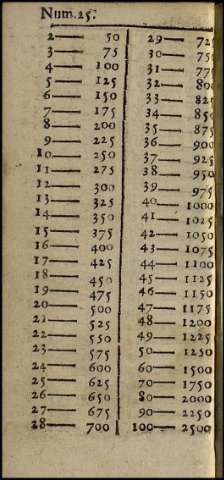 Num. 25.
2— 50
3— 75
4— 100
5— 125
6— 150
7— 175
8— 200
9— 225
10— 250
11— 275
12— 300
13— 325
14— 350
15— 375
16— 400
17— 425
18— 450
19— 475
20— 500
21— 525
22— 550
23— 575
24— 600
25— 625
26— 650
27— 675
28— 700
29— 72
30— 75
31— 77
32— 80
33— 82
34— 850
35— 875
36— 900
37— 925
38— 950
39— 975
40— 1000
41— 1025
42— 1050
43— 1075
44— 1100
45— 1125
46— 1150
47— 1175
48— 1200
49— 1225
50— 1250
60— 1500
70— 1750
80— 2000
90— 2250
100— 2500